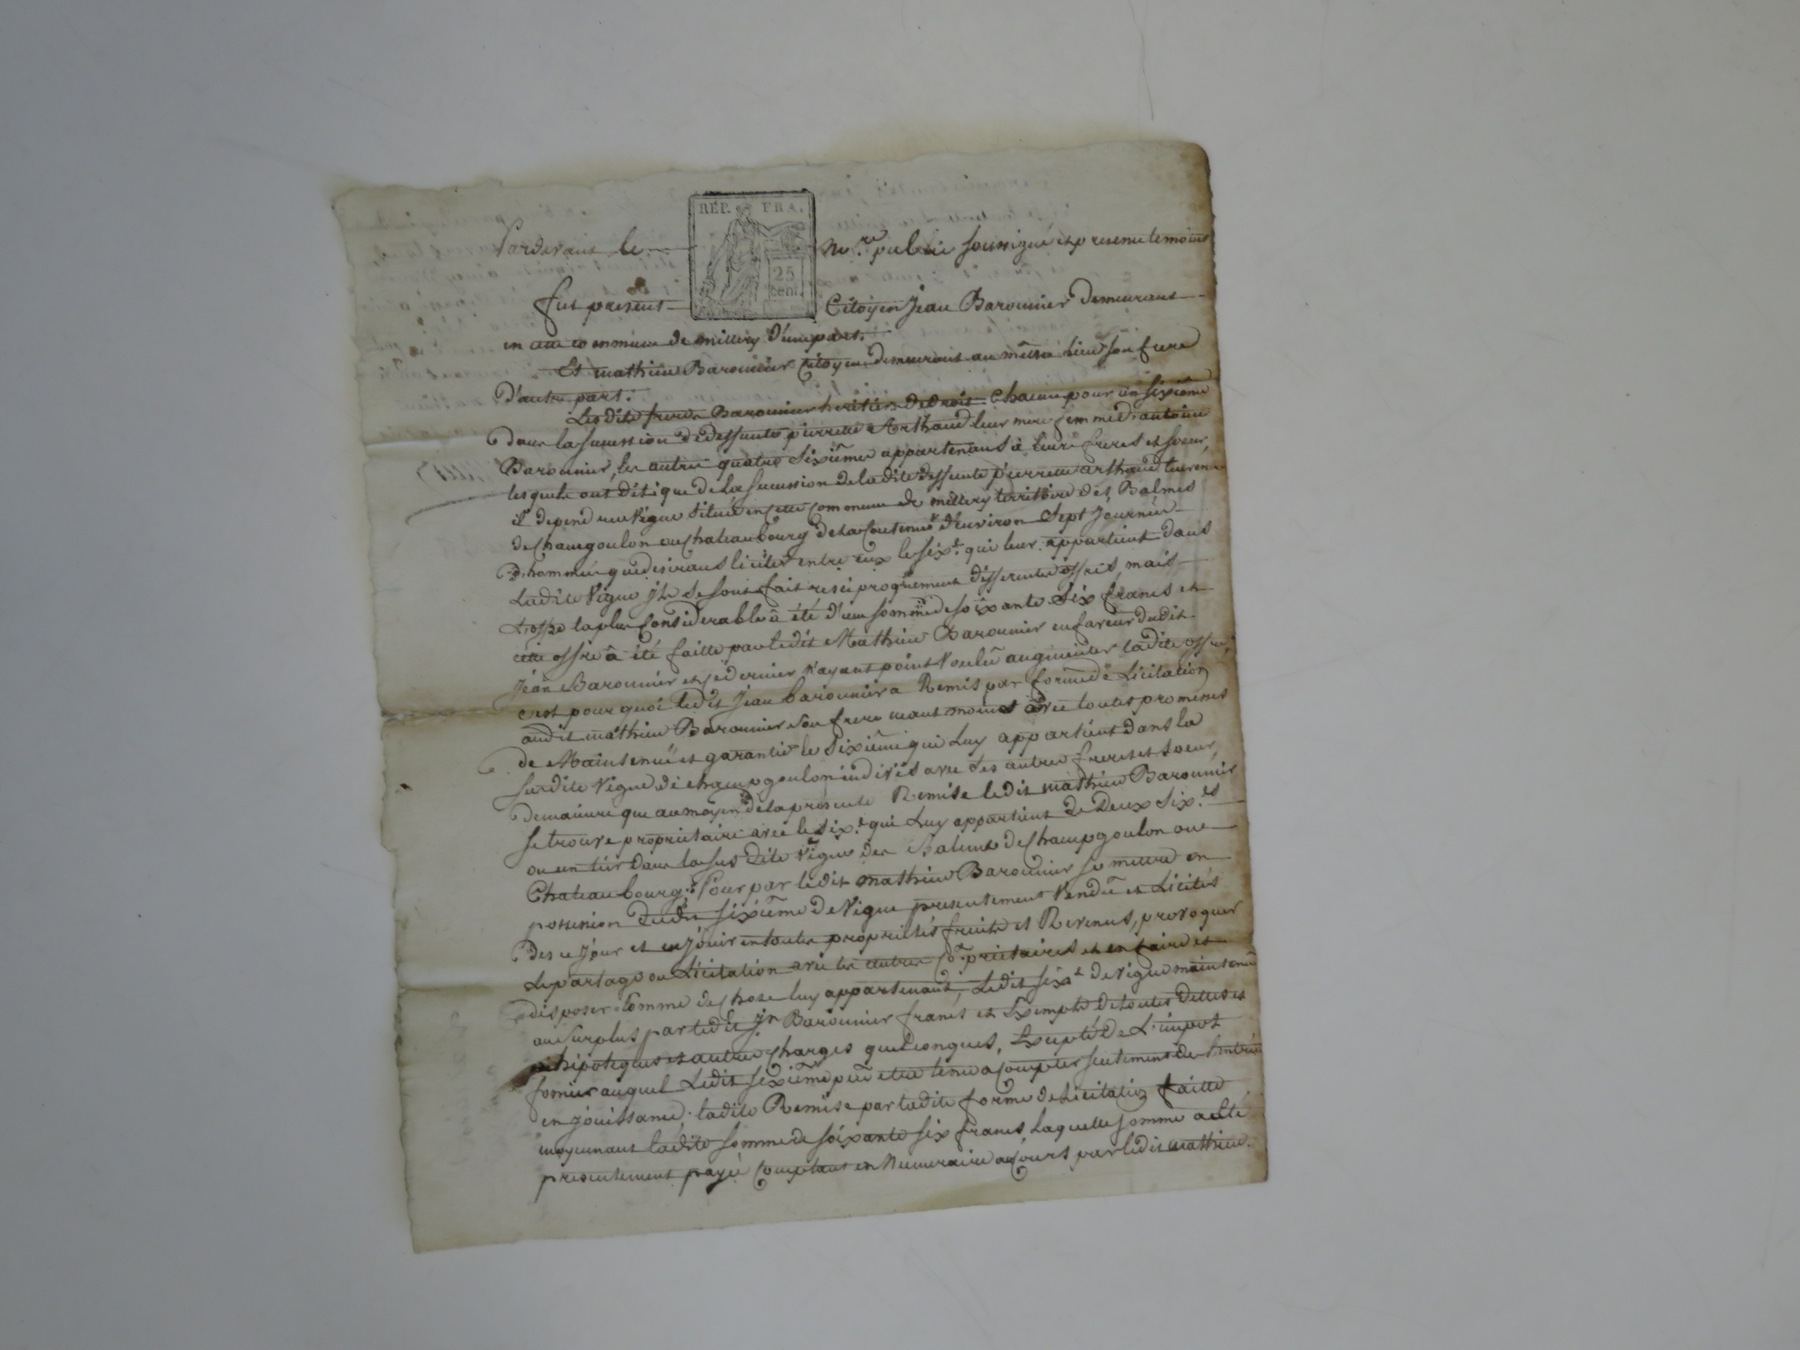 REP. FRA.
25
cent.
Pardevant le no.re public soussigné et presens temoins
fut present Citoyen Jean Barounier demeurant
en cette commune de millery d'une part.
Et mathieu Barounier Citoyen demeurant au même lieu son frere
d'autre part.
Lesdits freres Barounier heritiers de droit chacun pour un sixiême
dans la succession de deffunte pierrette Arthaud leur mere femme d'antoine
Barounier, les autres quatre sixiême appartenans à leurs freres et soeur,
lesquels ont dit que de la succession de ladite deffunte pierrette arthaud leur mere
il depend une vigne située en cette commune de millery territoire des Balmes
de Champgoulon ou Chateaubourg de la contenue d'environ sept journées
d'hommée que desirans liciter entre eux le six.e qui leur appartient dans
ladite vigne ils se sont fait reciproquement differentes offres mais
l'offre la plus considerable à été d'une somme de soixante six francs et
cette offre à été faitte par ledit Mathieu Barounier en faveur dudit
Jean Barounier et ce dernier n'ayant point voulu augmenter ladite offre,
c'est pourquoi ledit Jean barounier a Remis par forme de Licitation
audit mathieu Barounier son frere avec toutes promesses
de Maintenüe et garantie le sixiême qui luy appartient dans la
susdite vigne de champgoulon indivis avec ses autres freres et soeur,
demaniere que au moyen de la presente Remise ledit mathieu Barounier
se trouve proprietaire avec le six.e qui luy appartient de Deux six.es
ou un tier dans la susdite vigne des Balmes de Champgoulon ou
Chateaubourg: Pour par ledit mathieu Barounier se mettre en
possession dudit sixiême de vigne presentement vendû et licités
des ce jour et en jouir en toutes proprietés fruits et Revenus, provoquer
Le partage ou Licitation avec les autres co-prietaires et en faire et
disposer comme de chose luy appartenant, Ledit six.e de vigne maintenu
au surplus par ledit Jn Barounier francs et Exempts de toutes dettes et
hipoteques et autres charges quelconques, Excepté de L'impot
foncier auquel Ledit sixiême peu etre tenu a compter seulement de l'entrée
en jouissance, ladite Remise par ladite forme de Licitation faitte
moyennant ladite somme de soixante six francs, Laquelle somme a été
presentement payée comptant en Numeraire au cours par ledit mathieu